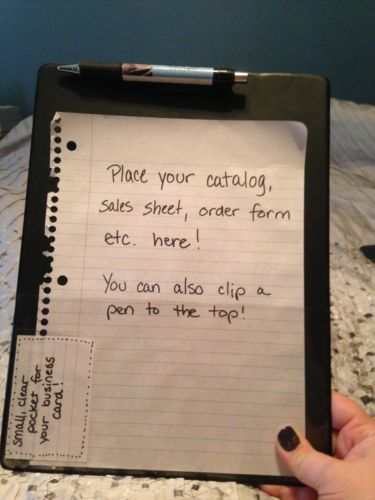 Place your catalog,
sales sheet, order form
etc. here!
You can also clip a
pen to the top!
small, clear
pocket for
your business
card!